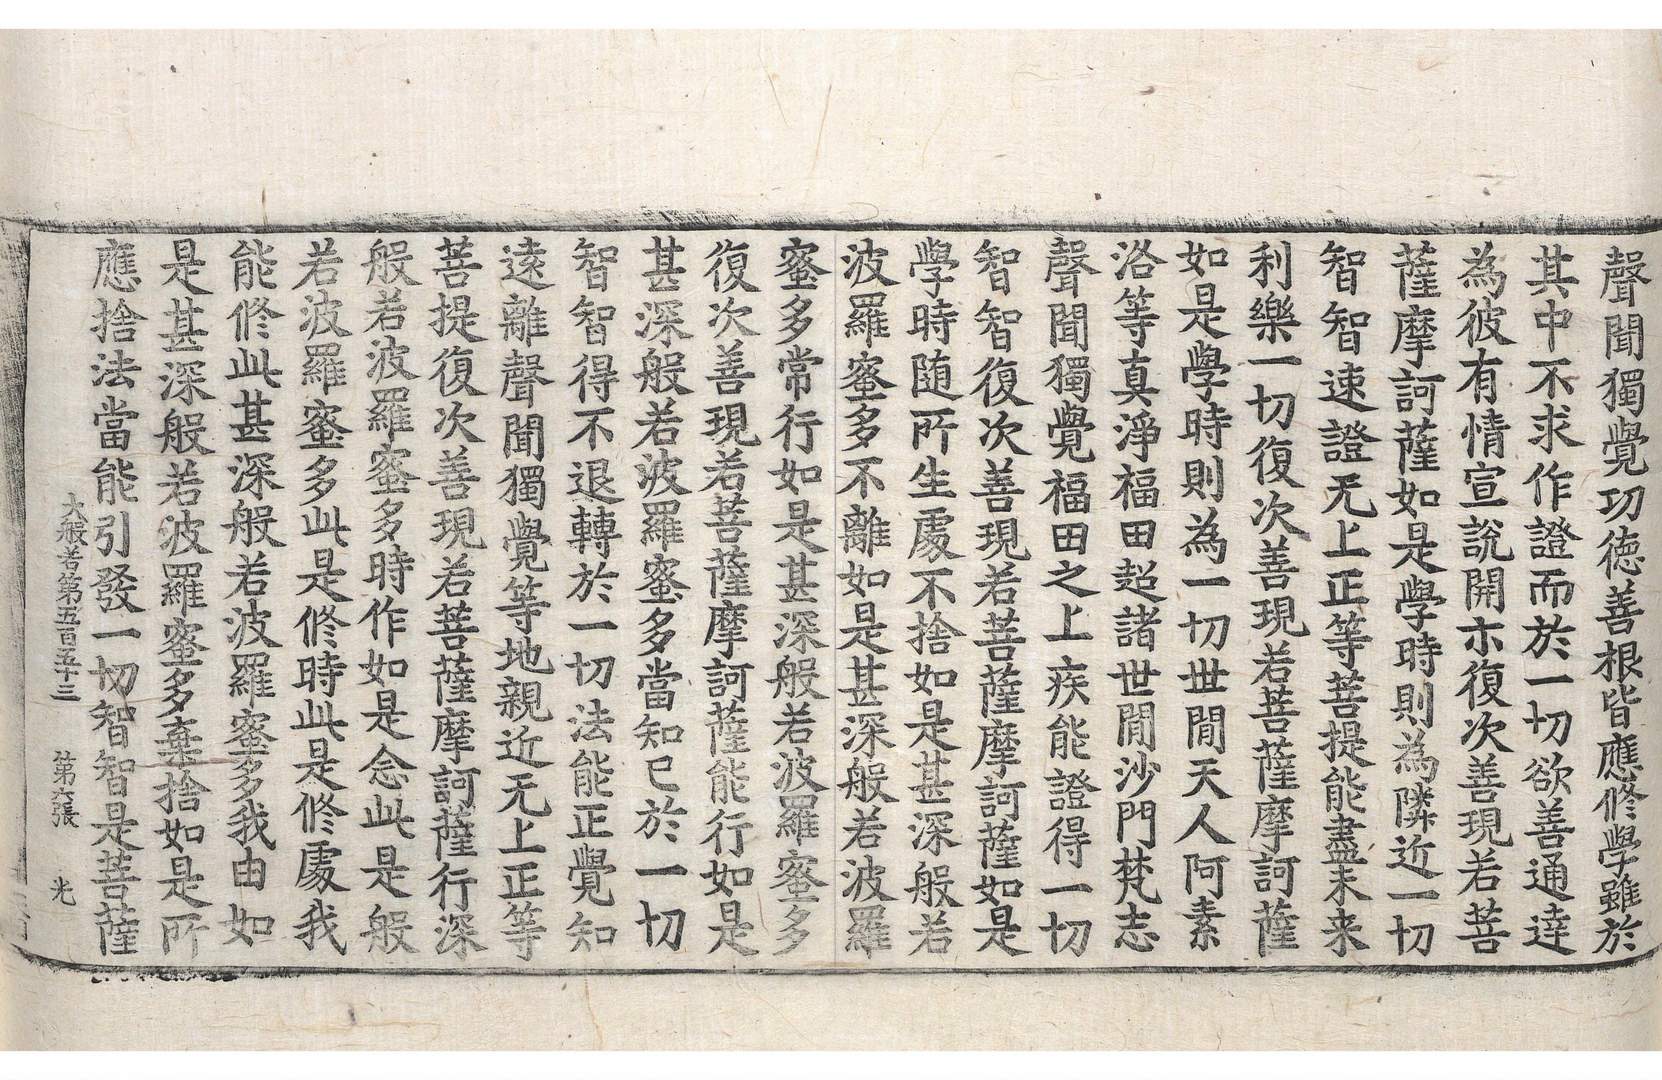 聲聞獨覺功德善根皆應修學雖於
其中不求作證而於一切欲善通達
為彼有情宣說開示復次善現若菩
薩摩訶薩如是學時則為隣近一切
智智速證无上正等菩提能盡未来
利樂一切復次善現若菩薩摩訶薩
如是學時則為一切世間天人阿素
洛等真淨福田超諸世間沙門梵志
聲聞獨覺福田之上疾能證得一切
智智復次善現若菩薩摩訶薩如是
學時随所生處不捨如是甚深般若
波羅蜜多不離如是甚深般若波羅
蜜多常行如是甚深般若波羅蜜多
復次善現若菩薩摩訶薩能行如是
甚深般若波羅蜜多當知已於一切
智智得不退轉於一切法能正覺知
遠離聲聞獨覺等地親近无上正等
菩提復次善現若菩薩摩訶薩行深
般若波羅蜜多時作如是念此是般
若波羅蜜多此是修時此是修處我
能修此甚深般若波羅蜜多我由如
是甚深般若波羅蜜多棄捨如是所
應捨法當能引發一切智智是菩薩
大般若第五百五十三　第六張　光